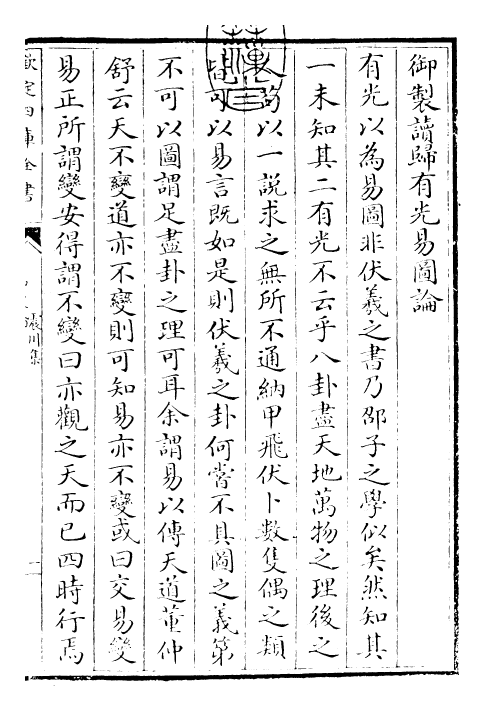 御製讀歸有光易圖論
有光以為易圖非伏羲之書乃邵子之學似矣然知其
一未知其二有光不云乎八卦盡天地萬物之理後之
人苟以一說求之無所不通納甲飛伏卜數隻偶之類
皆可以易言既如是則伏羲之卦何嘗不具圖之義第
不可以圖謂足盡卦之理可耳余謂易以傳天道董仲
舒云天不變道亦不變則可知易亦不變或曰交易變
易正所謂變安得謂不變曰亦觀之天而已四時行焉
欽定四庫全書
震川集